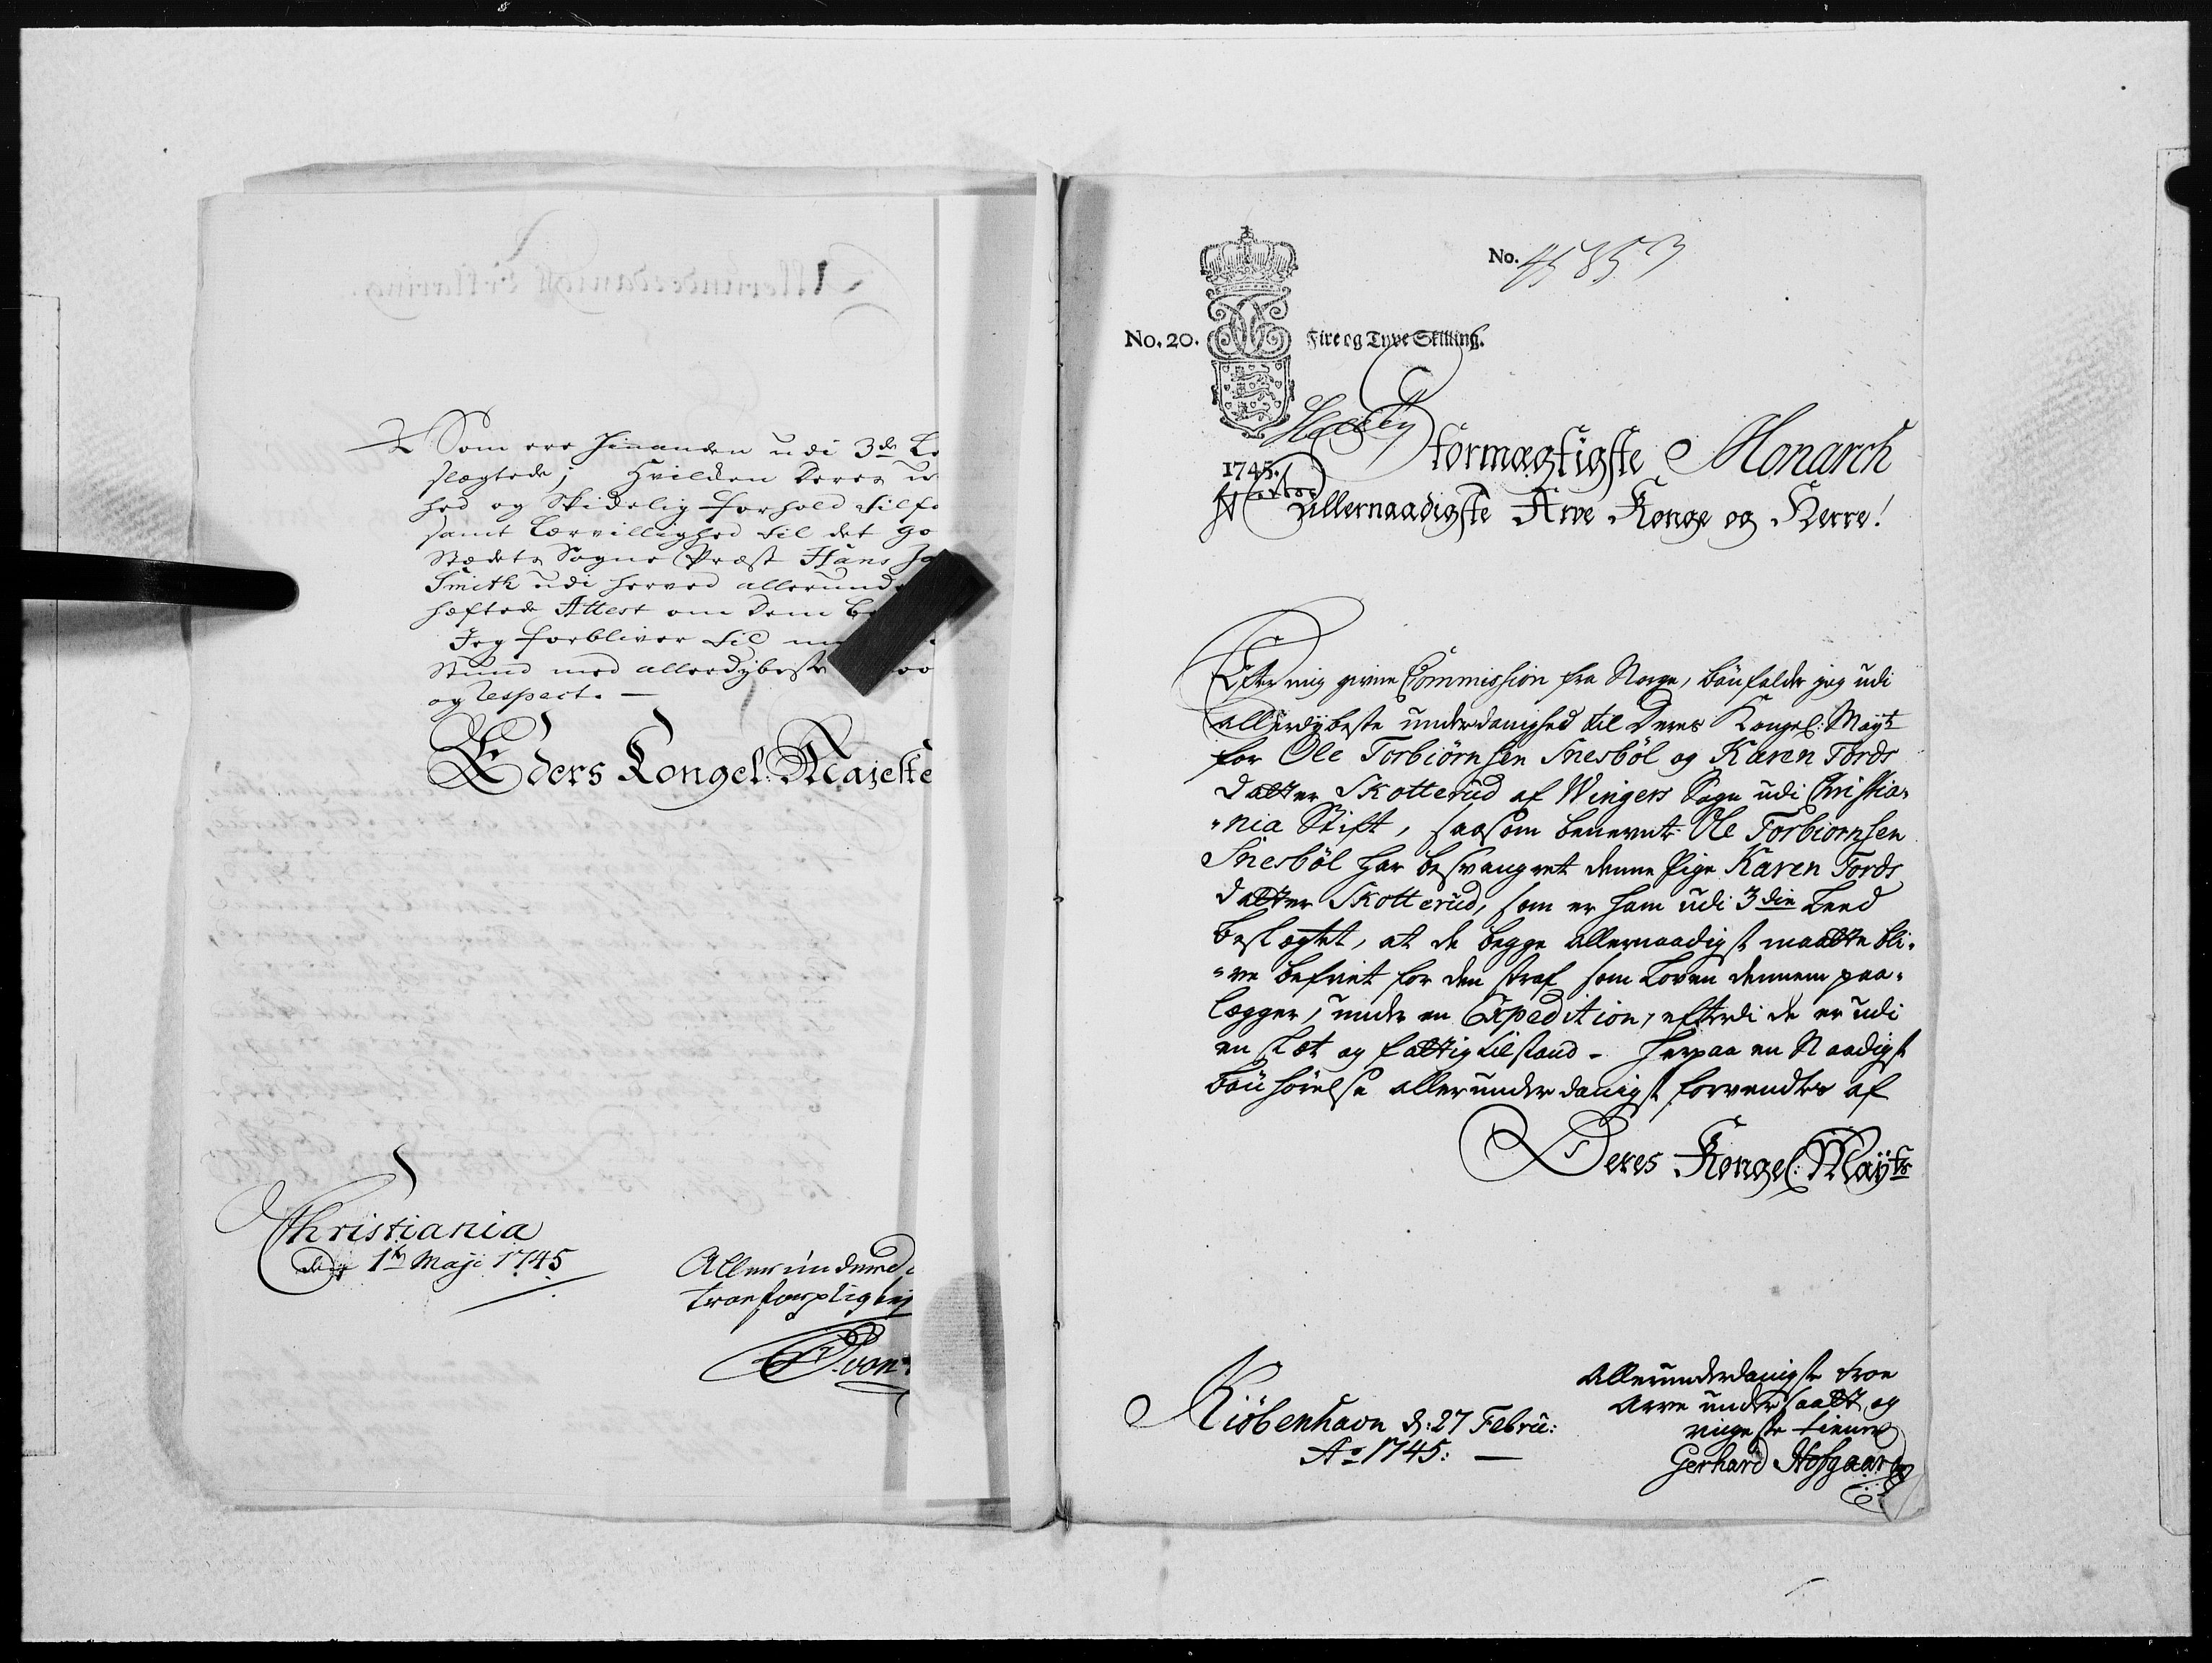 Som ere hinanden udi 3de Le
slægtede; hvilken Deres u
hed og Skikelig forhold tilfo
samt Lærvillighed til det go
Stædets Sogne Præst Hans Ja
Smith udi herved allerund
hæftede Attest om Dem be
Jeg forbliver til m
Stund med allerdybeste
og respect. —
Eders Kongel: Majeste
Christiania
den 1te Maji 1745
Allerunderd
troe forpligtig
No. 45853
No. 20.
Fire og Tyve Skilling.
1745.
Stormægtigste Monarch
Allernaadigste Arve Konge og Herre!
Efter mig given Commission fra Norge, bönfalder jeg udi
allerdybeste underdanighed til Deres Kongel: Mayt
for Ole Torbiörnsen Snesböl og Karen Tords
datter Skotterud af Wingers Sogn udi Christia-
-nia Stift, saasom benevnte Ole Torbiornsen
Snesböl har besvangret denne Pige Karen Tords
datter Skotterud, som er ham udi 3die Leed
beslægtet, at de begge allernaadigst maatte bli-
-ve befriet for den straf som Loven dennem paa-
lægger, under en Expedition, efterdi de er udi
en slet og fattig tilstand - herpaa en Naadigst
bönhörelse allerunderdanigst forventes af
Deres Kongel: Mayts
Kiöbenhavn d: 27 Febru:
Ao 1745: —
Allerunderdanigste troe
Arve undersaatt og
ringeste tiener
Gerhard Hofgaard